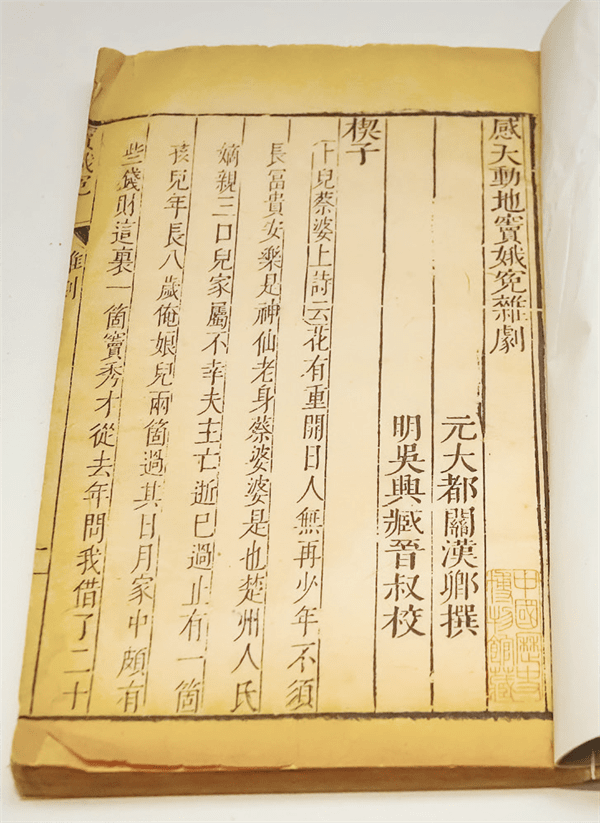 感天動地竇娥冤雜劇
中國歷史
博物館藏
元大都關漢卿撰
明吳興臧晉叔校
楔子
卜兒蔡婆上詩云花有重開日人無再少年不須
長富貴安樂是神仙老身蔡婆婆是也楚州人氏
嫡親三口兒家屬不幸夫主亡逝已過止有一箇
孩兒年長八歲俺娘兒兩箇過其日月家中頗有
些錢財這裏一箇竇秀才從去年問我借了二十
竇娥冤
雜劇
一